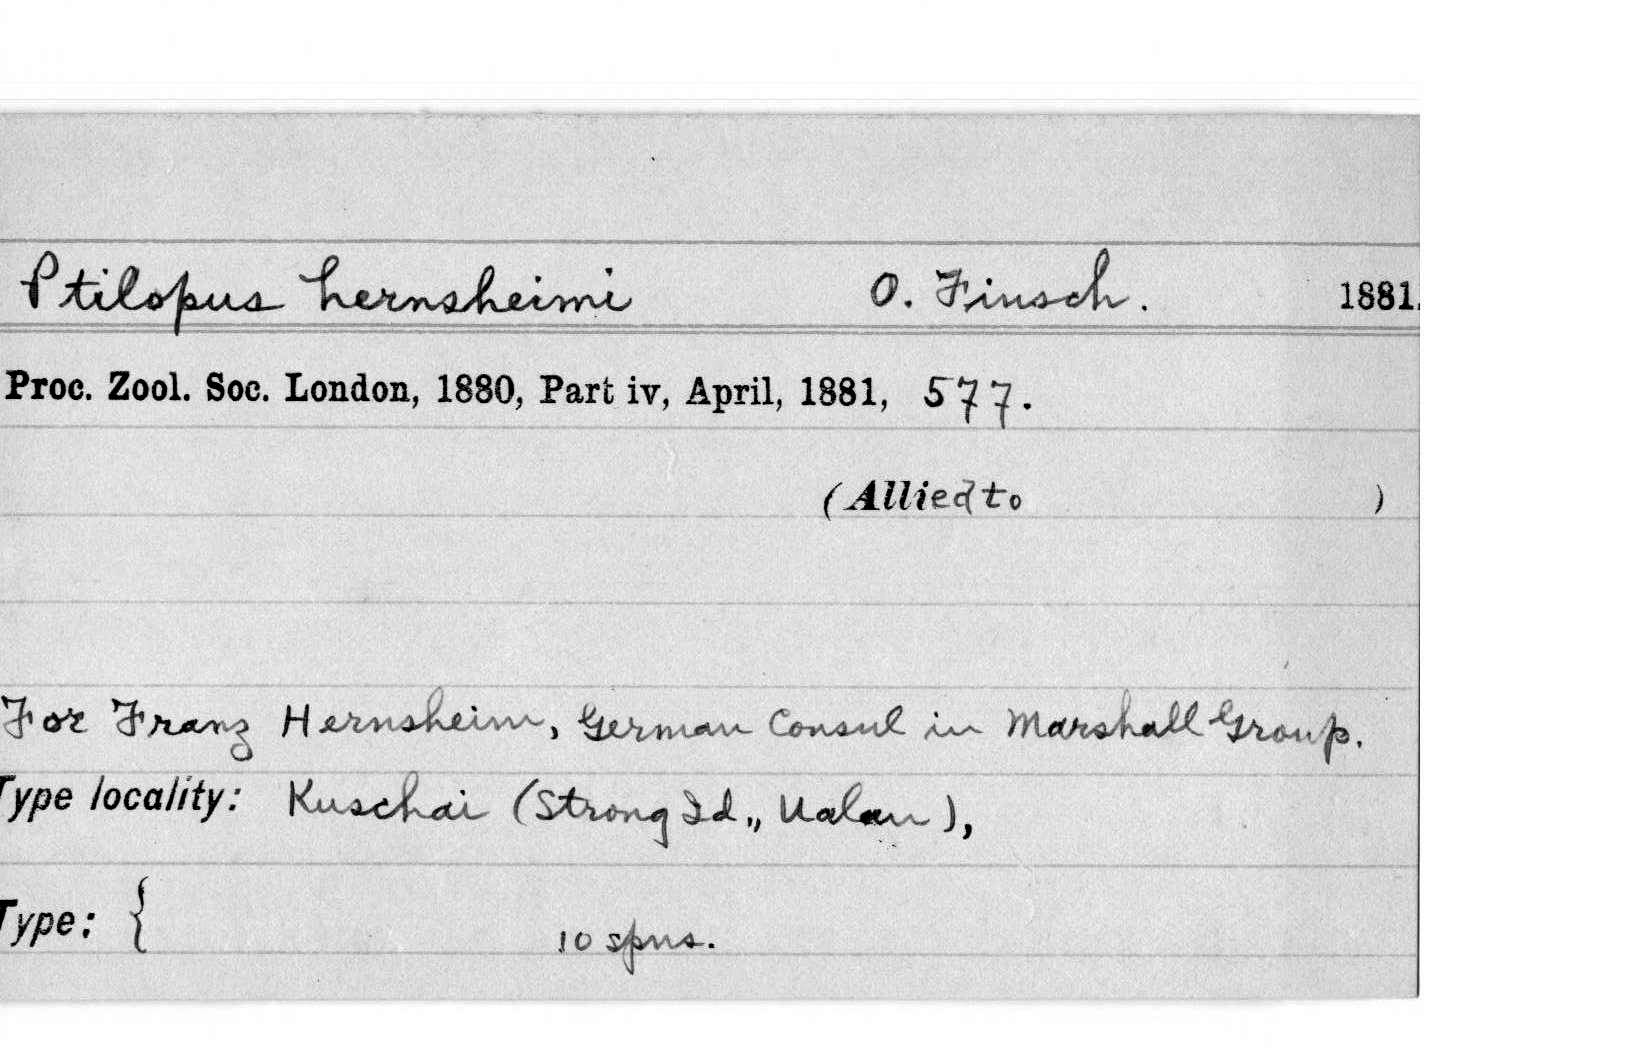 Ptilopus hernsheimi O. Finsch. 1881.
Proc. Zool. Soc. London, 1880, Part iv, April, 1881, 577.
(Allied to )
For Franz Hernsheim, German Consul in Marshall Group.
Type locality: Kuschai (Strong Id., Ualan),
Type: { 10 spns.